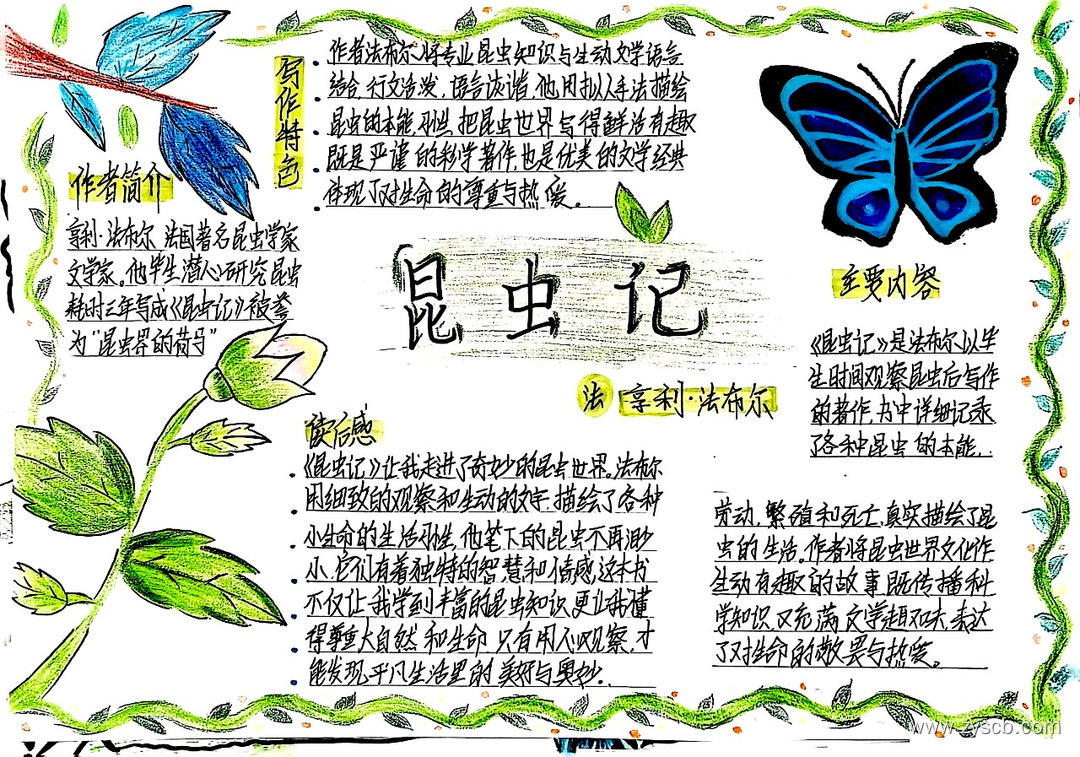 写作特色
作者法布尔将专业昆虫知识与生动文学语言
结合,行文活泼,语言诙谐,他用拟人手法描绘
昆虫的本能、习性,把昆虫世界写得鲜活有趣
既是严谨的科学著作,也是优美的文学经典
体现了对生命的尊重与热爱。
作者简介
亨利·法布尔 法国著名昆虫学家
文学家。他毕生潜心研究昆虫
耗时三年写成《昆虫记》被誉
为“昆虫界的荷马”
昆虫记
法 亨利·法布尔
主要内容
《昆虫记》是法布尔以毕
生时间观察昆虫后写作
的著作,书中详细记录
了各种昆虫的本能.
劳动,繁殖和死亡,真实描绘了昆
虫的生活。作者将昆虫世界文化作
生动有趣的故事既传播科
学知识 又充满文学趣味,表达
了对生命的敬畏与热爱。
读后感
《昆虫记》让我走进了奇妙的昆虫世界。法布尔
用细致的观察和生动的文字,描绘了各种
小生命的生活习性,他笔下的昆虫不再渺
小,它们有着独特的智慧和情感,这本书
不仅让我学到丰富的昆虫知识,更让我懂
得尊重大自然和生命 只有用心观察,才
能发现平凡生活里的美好与奥妙.
www.zyscb.com